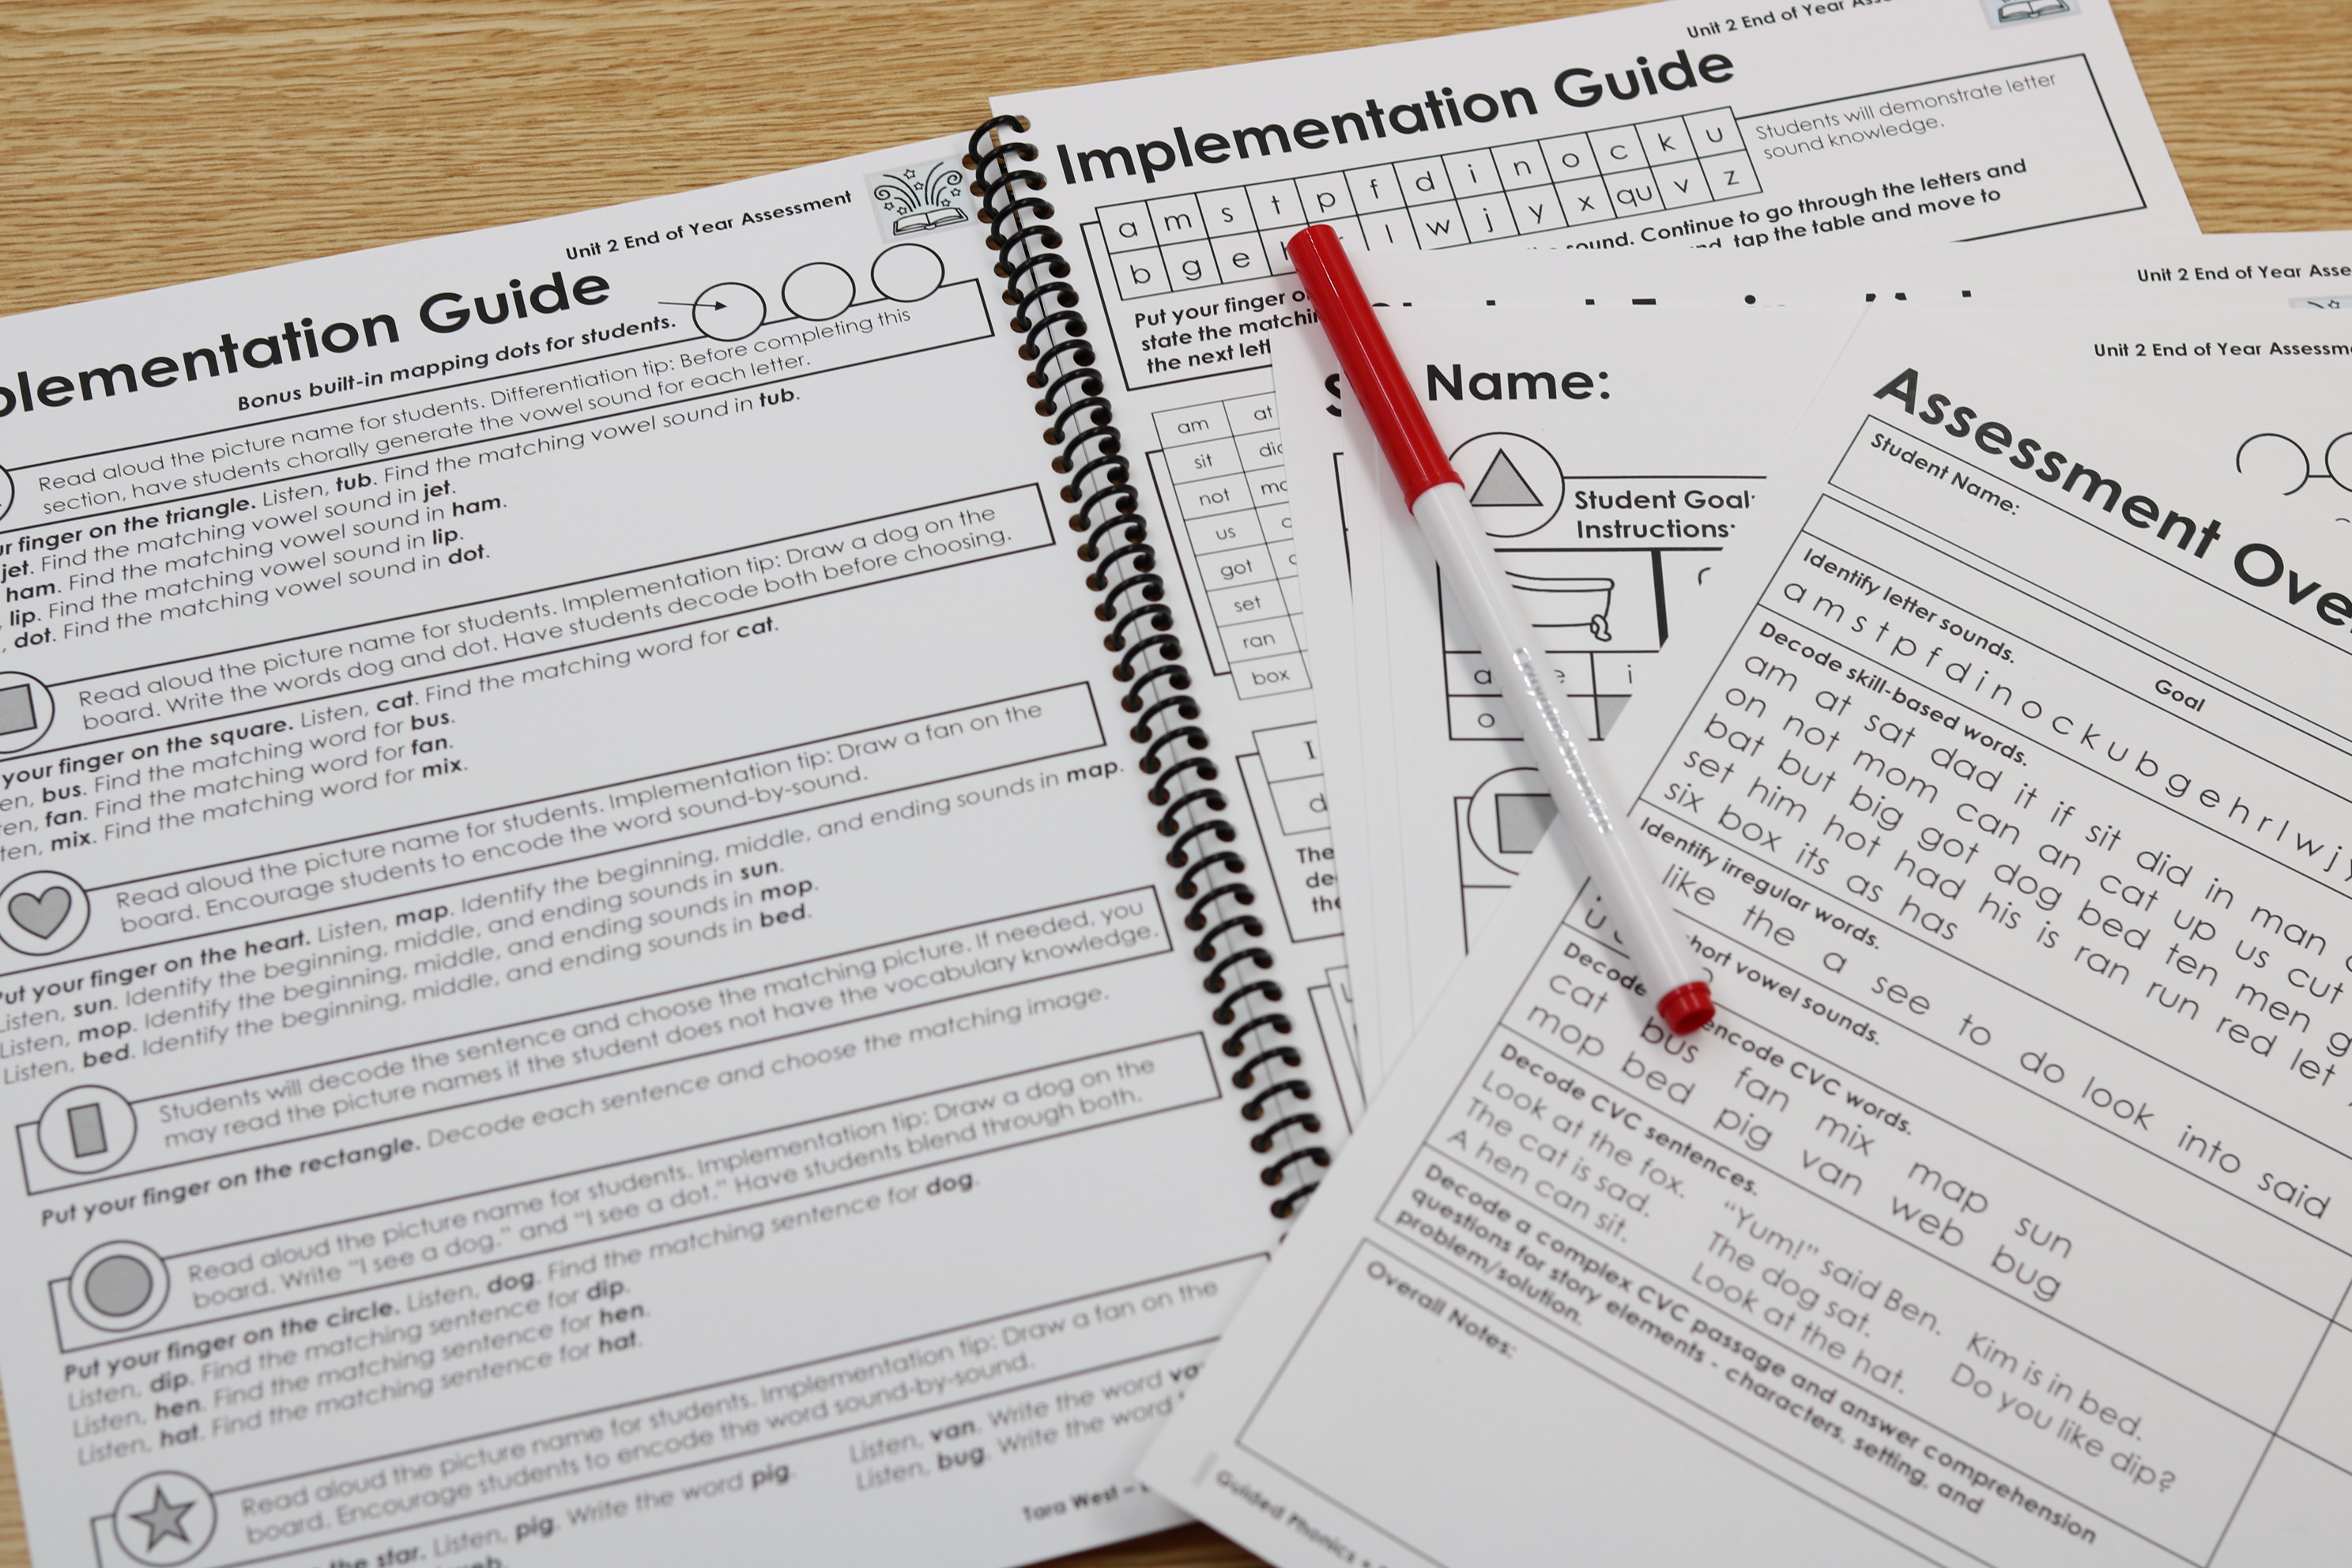 Unit 2 End of Year Assessment
Guide
Bonus built-in mapping dots for students.
Read aloud the picture name for students. Differentiation tip: Before completing this
section, have students chorally generate the vowel sound for each letter.
finger on the triangle. Listen, tub. Find the matching vowel sound in tub.
jet. Find the matching vowel sound in jet.
ham. Find the matching vowel sound in ham.
lip. Find the matching vowel sound in lip.
dot. Find the matching vowel sound in dot.
Read aloud the picture name for students. Implementation tip: Draw a dog on the
board. Write the words dog and dot. Have students decode both before choosing.
your finger on the square. Listen, cat. Find the matching word for cat.
bus. Find the matching word for bus.
fan. Find the matching word for fan.
mix. Find the matching word for mix.
Read aloud the picture name for students. Implementation tip: Draw a fan on the
board. Encourage students to encode the word sound-by-sound.
Put your finger on the heart. Listen, map. Identify the beginning, middle, and ending sounds in map.
Listen, sun. Identify the beginning, middle, and ending sounds in sun.
Listen, mop. Identify the beginning, middle, and ending sounds in mop.
Listen, bed. Identify the beginning, middle, and ending sounds in bed.
Students will decode the sentence and choose the matching picture. If needed, you
may read the picture names if the student does not have the vocabulary knowledge.
Put your finger on the rectangle. Decode each sentence and choose the matching image.
Read aloud the picture name for students. Implementation tip: Draw a dog on the
board. Write "I see a dog." and "I see a dot." Have students blend through both.
Put your finger on the circle. Listen, dog. Find the matching sentence for dog.
Listen, dip. Find the matching sentence for dip.
Listen, hen. Find the matching sentence for hen.
Listen, hat. Find the matching sentence for hat.
Read aloud the picture name for students. Implementation tip: Draw a fan on the
board. Encourage students to encode the word sound-by-sound.
the star. Listen, pig. Write the word pig.
Listen, van. Write the word
Listen, bug. Write the word
Tara West
Unit 2 End of Year
Implementation Guide
a m s t p f d i n o c k u
b g e l w j y x qu v z
Students will demonstrate letter
sound knowledge.
sound. Continue to go through the letters and
tap the table and move to
Put your finger
state the
the next
am at
sit
not
us
got
set
ran
box
I
d
The
Unit 2 End of Year
Name:
Student Goal
Instructions:
a i
o
Unit 2 End of Year
Assessment
Student Name:
Goal
Identify letter sounds.
a m s t p f d i n o c k u b g e h r l w j
Decode skill-based words.
am at sat dad it if sit did in man
on not mom can an cat up us cut
bat but big got dog bed ten men
set him hot had his is ran run red let
six box its as has
Identify irregular words.
like the a see to do look into said
short vowel sounds.
Decode encode CVC words.
cat bus fan mix map sun
mop bed pig van web bug
Decode CVC sentences.
Look at the fox. "Yum!" said Ben. Kim is in bed.
The cat is sad. The dog sat. Do you like dip?
A hen can sit. Look at the hat.
Decode a complex CVC passage and answer comprehension
questions for story elements - characters, setting, and
problem/solution.
Overall Notes:
Guided Phonics